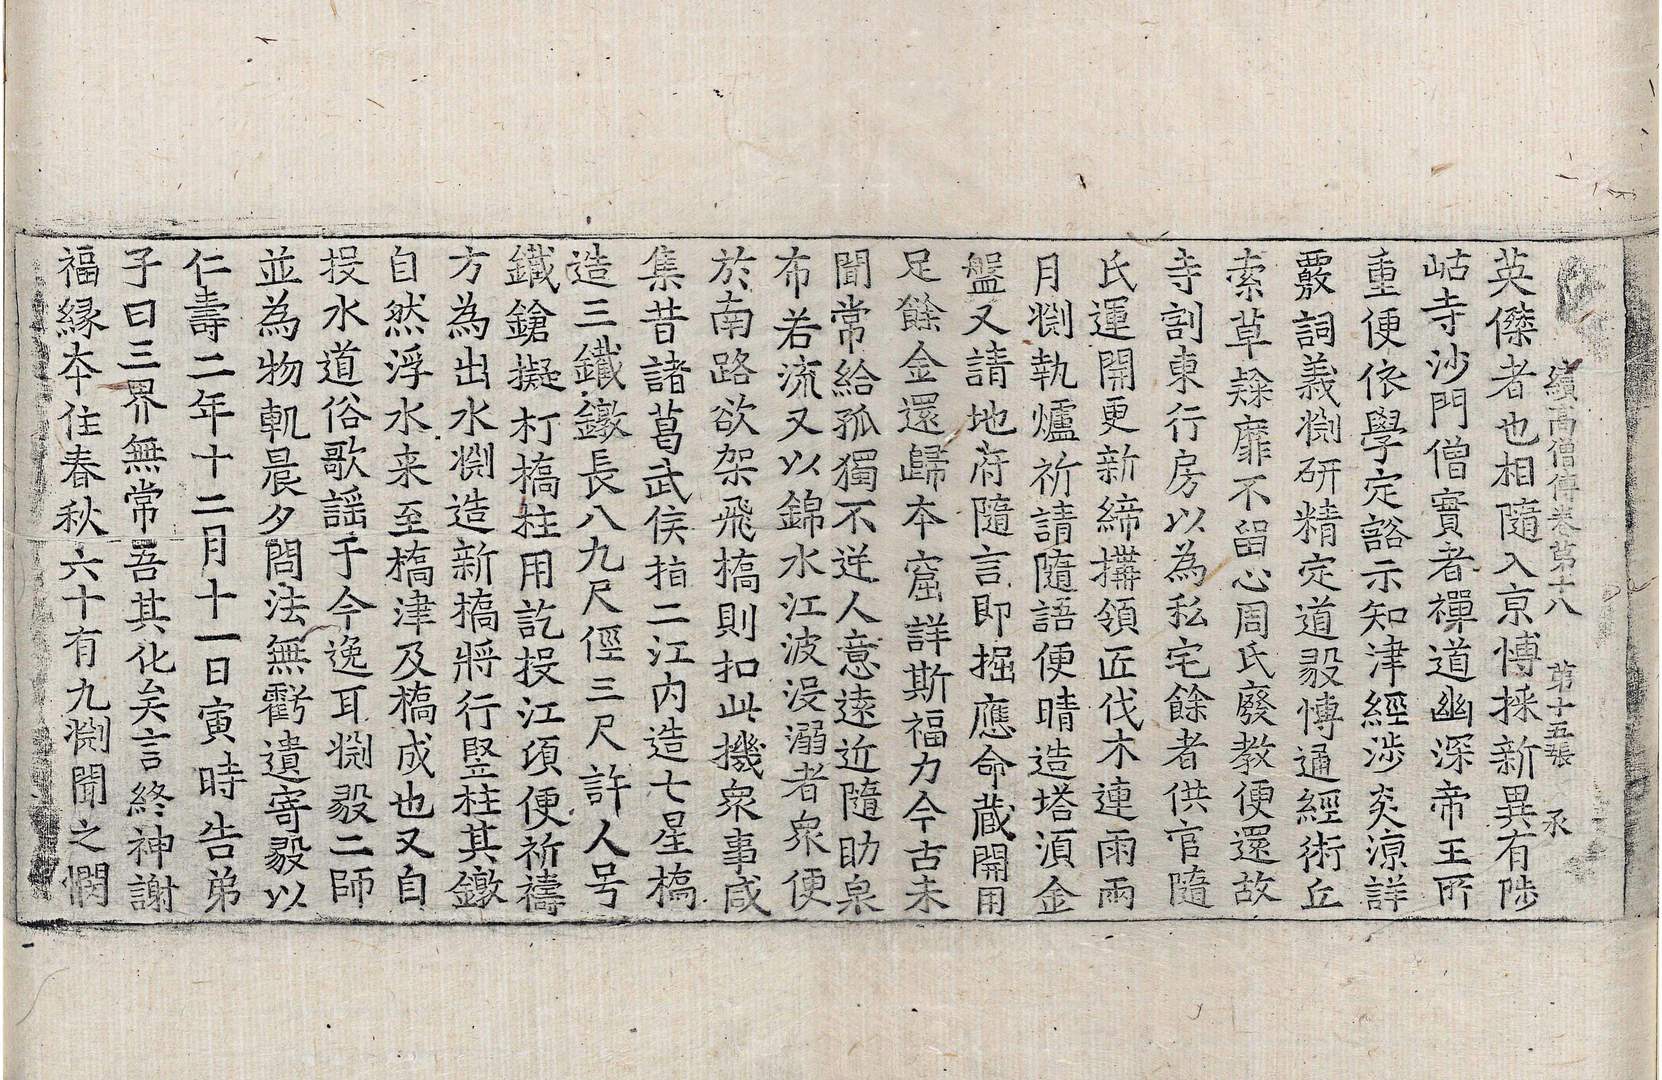 續高僧傳卷第十八 第十五張 承
英傑者也相隨入京博採新異有陟
岵寺沙門僧實者禪道幽深帝王所
重便依學定豁示知津經涉炎涼詳
覈詞義淵研精定道毅博通經術丘
索草𨽻靡不留心周氏廢教便還故
寺割東行房以為私宅餘者供官隨
氏運開更新締構領匠伐木連雨兩
月淵執爐祈請隨語便晴造塔須金
盤又請地府隨言即掘應命藏開用
足餘金還歸本窟詳斯福力今古未
聞常給孤獨不逆人意遠近隨助泉
布若流又以錦水江波沒溺者衆便
於南路欲架飛橋則扣此機衆事咸
集昔諸葛武侯指二江內造七星橋
造三鐵鐓長八九尺徑三尺許人号
鐵鎗擬打橋柱用訖投江頃便祈禱
方為出水淵造新橋將行竪柱其鐓
自然浮水来至橋津及橋成也又自
投水道俗歌謡于今逸耳淵毅二師
並為物軌晨夕問法無虧遺寄毅以
仁壽二年十二月十一日寅時告弟
子曰三界無常吾其化矣言終神謝
福緣本住春秋六十有九淵聞之憫